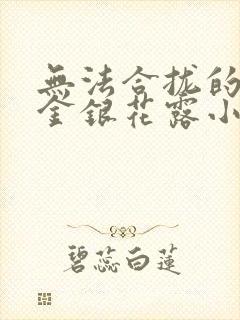 無法合拢的
金銀花露小
碧蕊白蓮